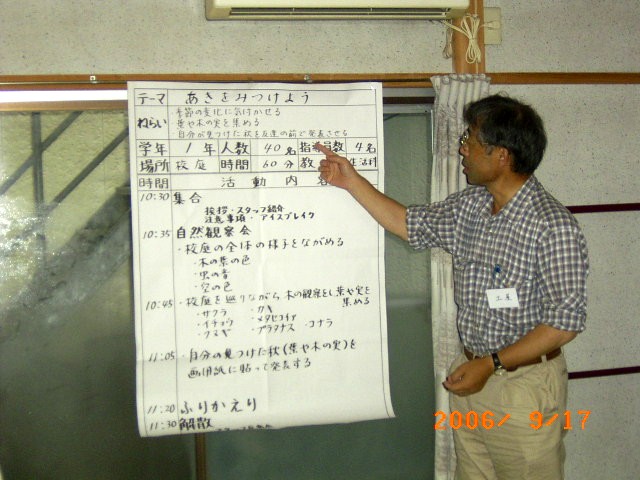 テーマ あきをみつけよう
ねらい ・季節の変化に気付かせる
・葉や木の実を集める
・自分が見つけた秋を友達の前で発表させる
学年 1年 人数 40名 指導員数 4名
場所 校庭 時間 60分 教 生活科
時間 活動内容
10:30 集合
挨拶・スタッフ紹介
注意事項・アイスブレイク
10:35 自然観察会
・校庭の全体の様子をながめる
・木の葉の色
・虫の音
・空の色
10:45 ・校庭を巡りながら木の観察をし葉や実を
集める
・サクラ ・カキ
・イチョウ ・メタセコイア
・クヌギ ・プラタナス ・コナラ
11:05 ・自分の見つけた秋(葉や木の実)を
画用紙に貼って発表する
11:20 ふりかえり
11:30 解散
2006/ 9/17